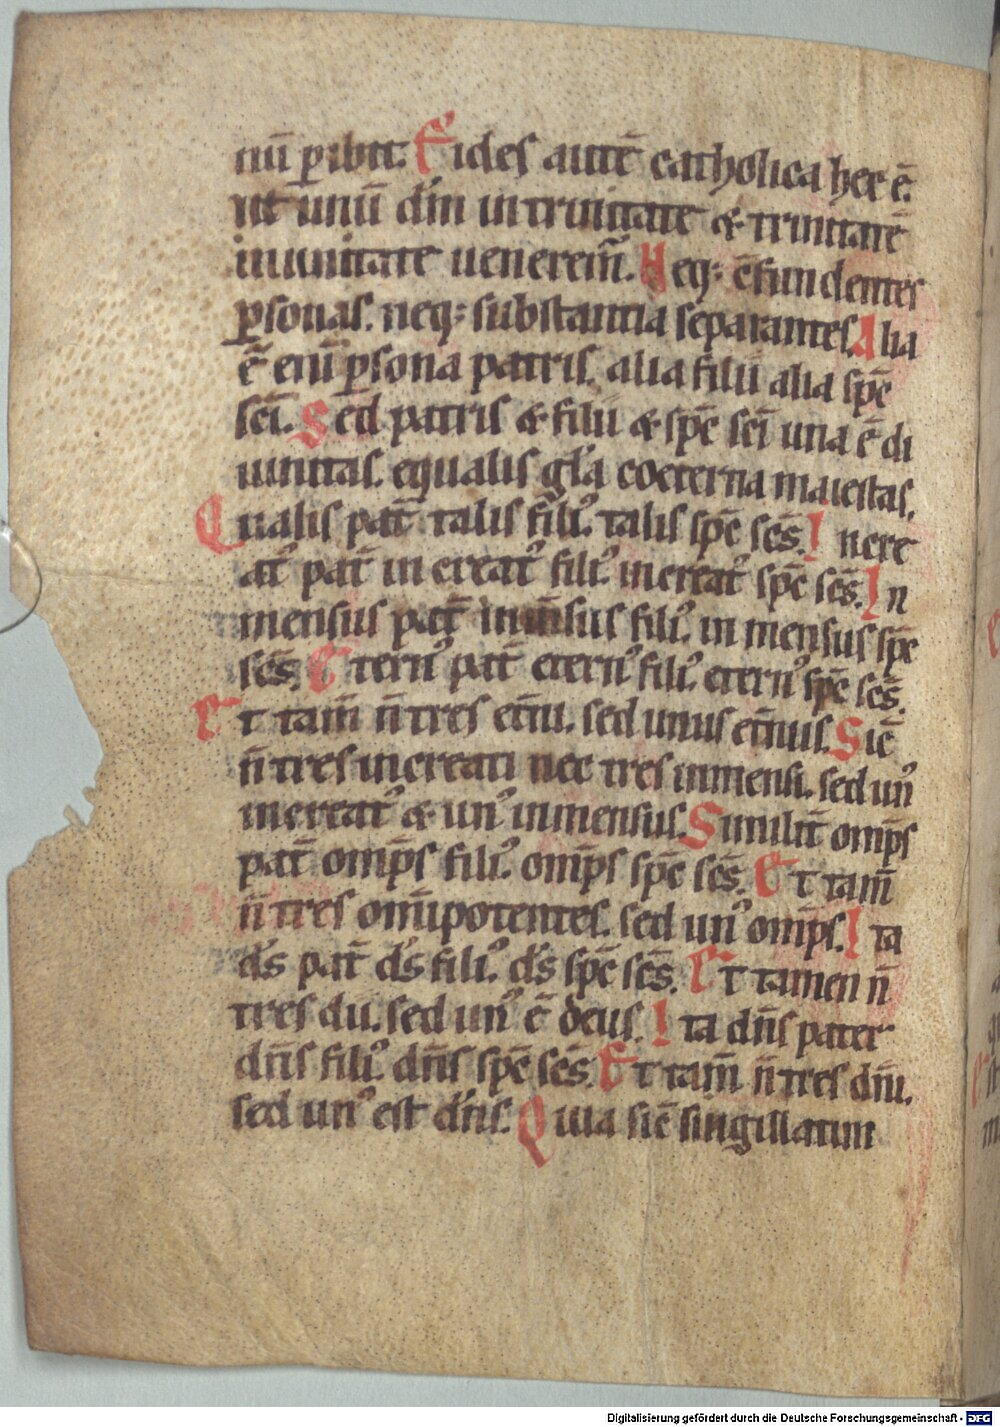 nū ꝑibit. Fides autē catholica hec ē.
ut unū dm̄ in trinitate & trinitatē
in unitate ueneremur̄. Neqꝫ cōfundentes
ꝑsonas. neqꝫ substantia separantes. Alia
ē eni ꝑsona patris. alia filii alia spē
sc̄i. Sed patris & filii & spē sc̄i una ē di
uinitas. equalis gl̄a coeterna maiestas.
Qualis pat̄ talis filiꝰ. talis spc̄ sc̄s. Incre
atꝰ pat̄ increatꝰ filiꝰ. increatꝰ spc̄ sc̄s. In
mensus pat̄ inm̄sus filiꝰ. inmensus spc̄
sc̄s. Eternꝰ pat̄ eternꝰ filiꝰ. eternꝰ spc̄ sc̄s.
Et tam̄ n̄ tres et̄ni. sed unus et̄nus. Sic̄
n̄ tres increati nec tres inmensi. sed unꝰ
increatꝰ & unꝰ inmensus. Similit̄ omp̄s
pat̄ omp̄s filiꝰ. omp̄s spc̄ sc̄s. Et tam̄
n̄ tres om̄ipotentes. sed unꝰ omp̄s. Ita
ds̄ pat̄ ds̄ filiꝰ. ds̄ spc̄ sc̄s. Et tamen n̄
tres dii. sed unꝰ ē deus. Ita dn̄s pater
dn̄s filiꝰ. dn̄s spc̄ sc̄s. Et tam̄ n̄ tres dn̄i.
sed unꝰ est dn̄s. Quia sic̄ singillatim
Digitalisierung gefördert durch die Deutsche Forschungsgemeinschaft - DFG